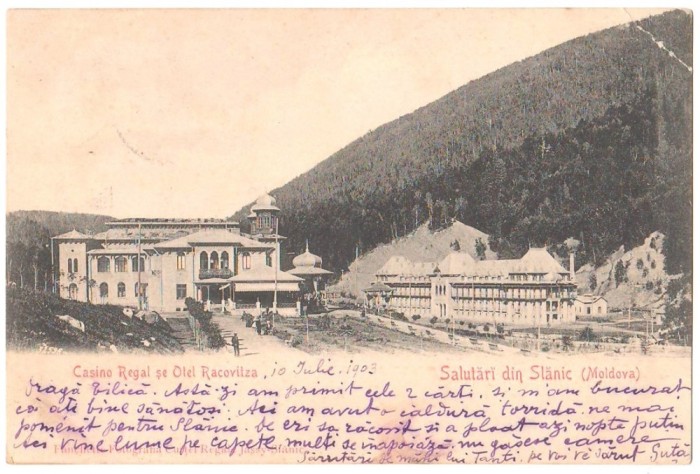 Casino Regal șe Otel Racovitza, 10 Iulie. 1903
Salutări din Slănic (Moldova)
Dragă Bilică. Astă-zi am primit cele 2 cărți, și m'am bucurat
că ați bine sănătoși. Aci am avut o caldură torridă ne mai
pomenit pentru Slanic de eri sa răcorit si a ploat azi nopte putin
Aci vine lume pe capete, mulți se inapoiază, nu găsesc camere
Sărutări de mâni lui Tanti, pe voi vĕ sărut Guță